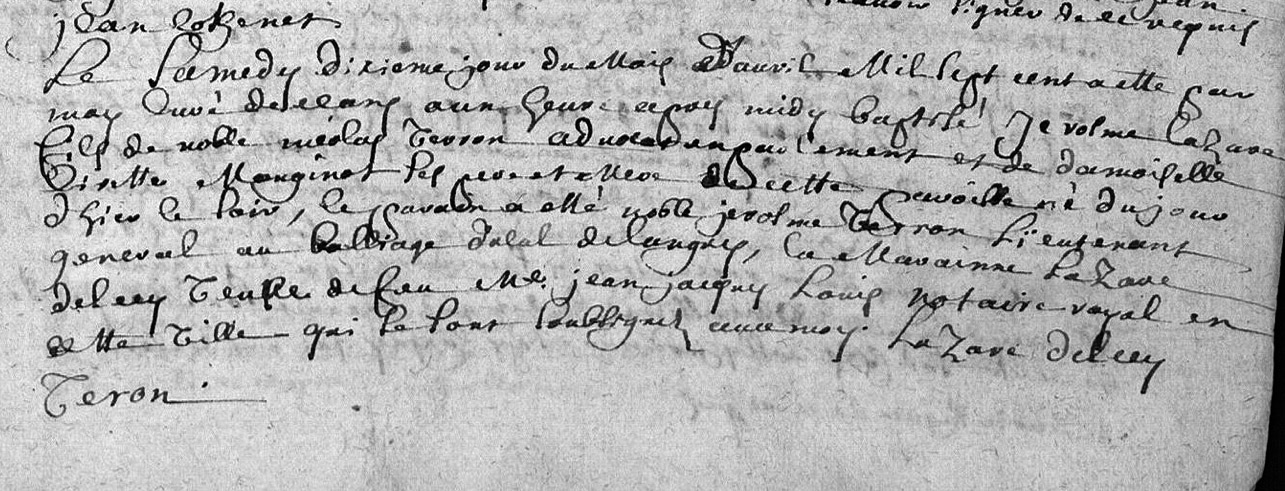 signer de ce requis
jean
Le samedy dixieme jour du mois d'avril mil sept cent a esté par
moy curé de ceans a un heure apres midy baptisé jerosme lazare
fils de noble nicolas Terron advocat en parlement et de damoiselle
Monginot ses pere et mere de cette paroisse né du jour
d'hier le soir, le parain a esté noble jerosme Terron Lieutenant
general au balliage ducal de langres, la Marainne Lazare
delecey veufve de feu Me jean jacques Louis notaire royal en
cette ville qui se sont soubsignez avec moy. Lazare delecey
Teron.